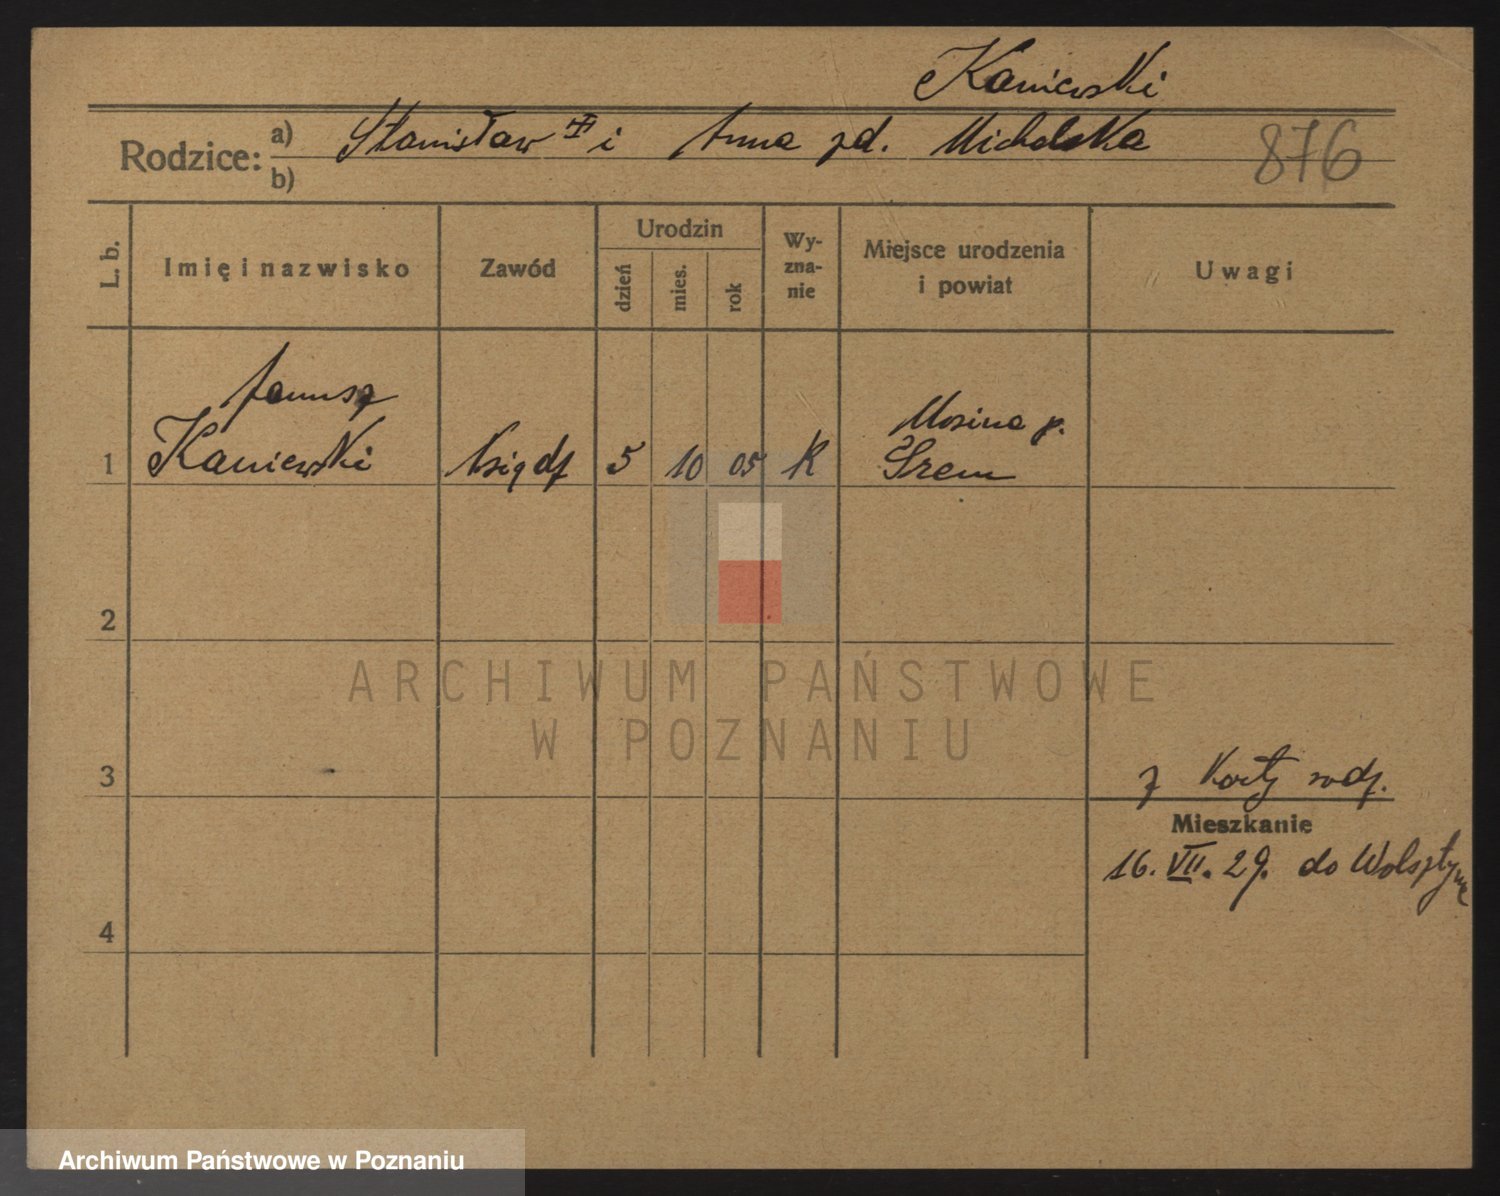 Kaniewski
Rodzice: a) Stanisław i Anna zd. Micholska
b)
876
L. b.
Imię i nazwisko
Zawód
Urodzin
dzień
mies.
rok
Wy-
zna-
nie
Miejsce urodzenia
i powiat
Uwagi
Janusz
Kaniewski
1
ksiądz
5
10
05
K
Mosina p.
Śrem
2
3
z karty rodz.
Mieszkanie
16. VII. 29. do Wolsztyna
4
ARCHIWUM PAŃSTWOWE
W POZNANIU
Archiwum Państwowe w Poznaniu